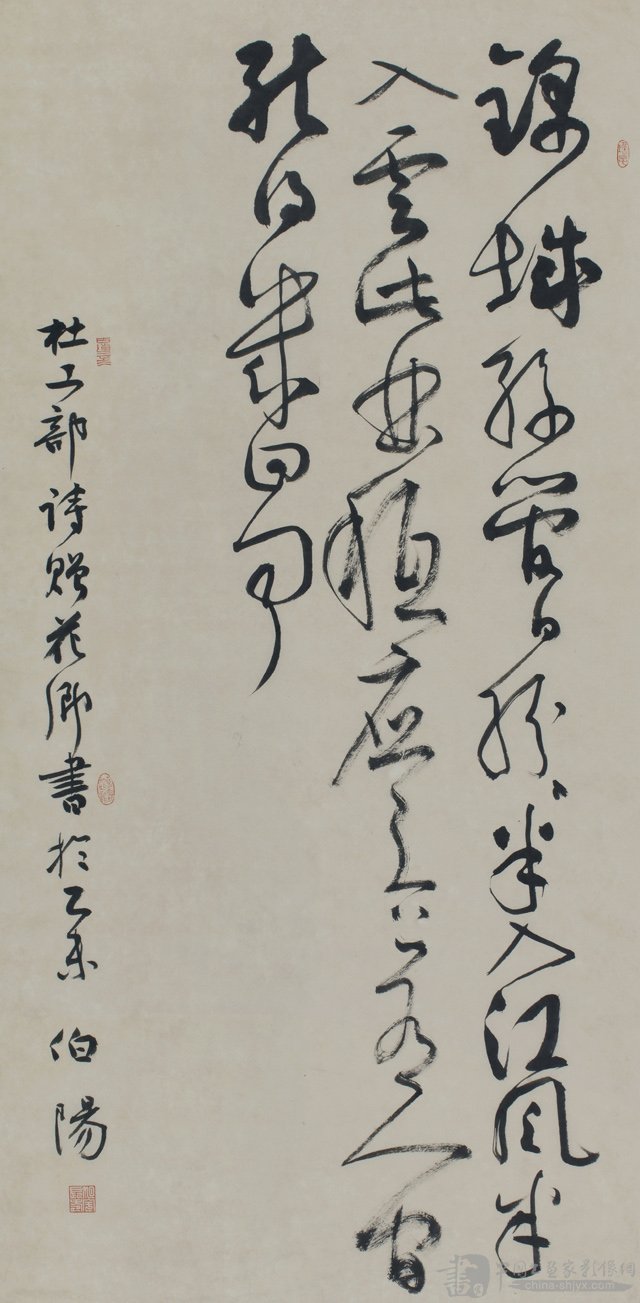 錦城絲管日紛々半入江風半
入雲此曲祇應天上有人間
能得幾回聞
杜工部詩贈花卿書於乙未 伯陽
書
中国書画家影像網
china-shjyx.com